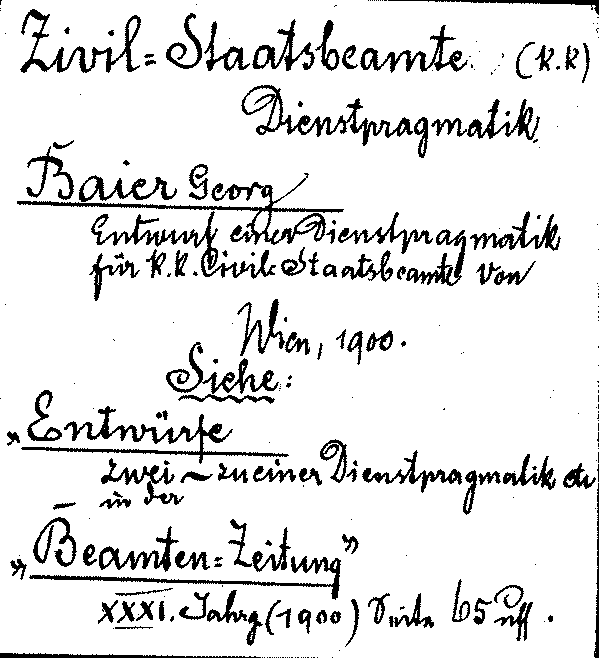 Zivil=Staatsbeamte (k.k)
Dienstpragmatik
Baier Georg
Entwurf einer Dienstpragmatik
für k.k. Civil=Staatsbeamte von
Wien, 1900.
Siehe:
„Entwürfe
zwei — zu einer Dienstpragmatik etc
in der
„Beamten=Zeitung”
XXXI. Jahrg. (1900) Seite 65 uff.